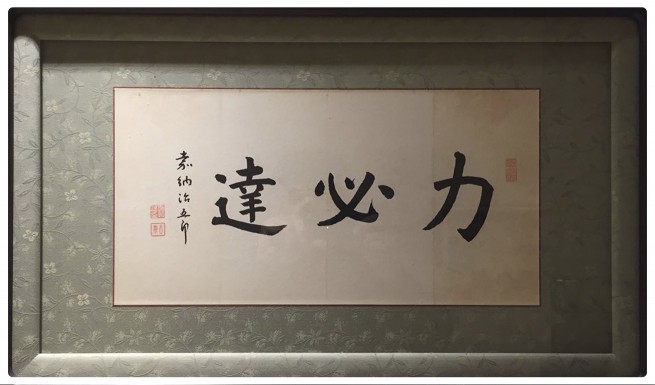 力必達
嘉納治五郎